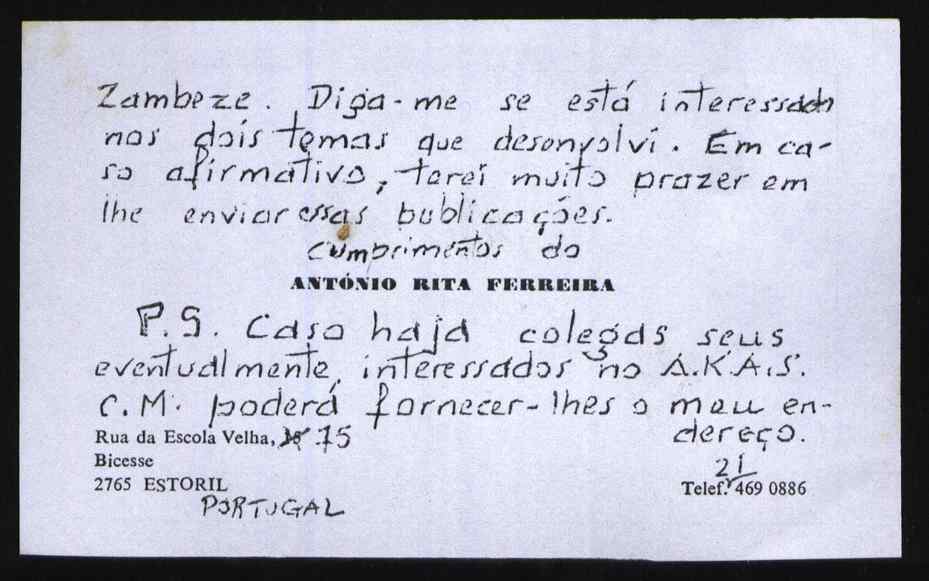 Zambeze. Diga-me se está interessado
nos dois temas que desenvolvi. Em ca-
so afirmativo, terei muito prazer em
lhe enviar essas publicações.
Cumprimentos do
ANTÓNIO RITA FERREIRA
P.S. Caso haja colegas seus
eventualmente interessados no A.K.A.S.
C.M. poderá fornecer-lhes o meu en-
dereço.
Rua da Escola Velha, 75
Bicesse
2765 ESTORIL
PORTUGAL
21
Telef. 469 0886